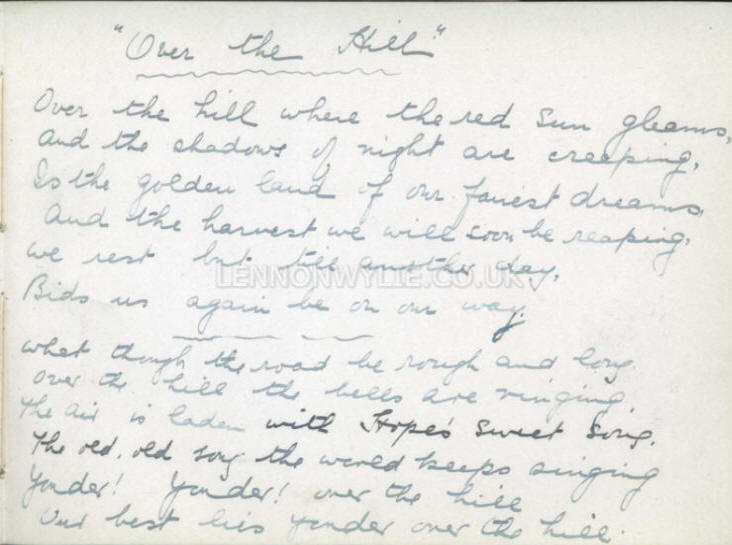 "Over the Hill"
Over the hill where the red sun gleams,
And the shadows of night are creeping,
Is the golden land of our fairest dreams,
And the harvest we will soon be reaping.
We rest but till another day,
LENNONWYLIE.CO.UK
Bids us again be on our way.
What though the road be rough and long.
Over the hill the bells are ringing,
The air is laden with Hope's sweet song.
The old, old song the world keeps singing
Yonder! Yonder! over the hill
Our best lies yonder over the hill.